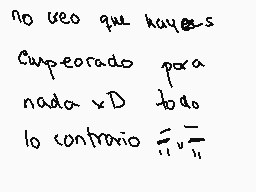 no veo que hayas
empeorado para
nada xD todo
lo contrario =","=